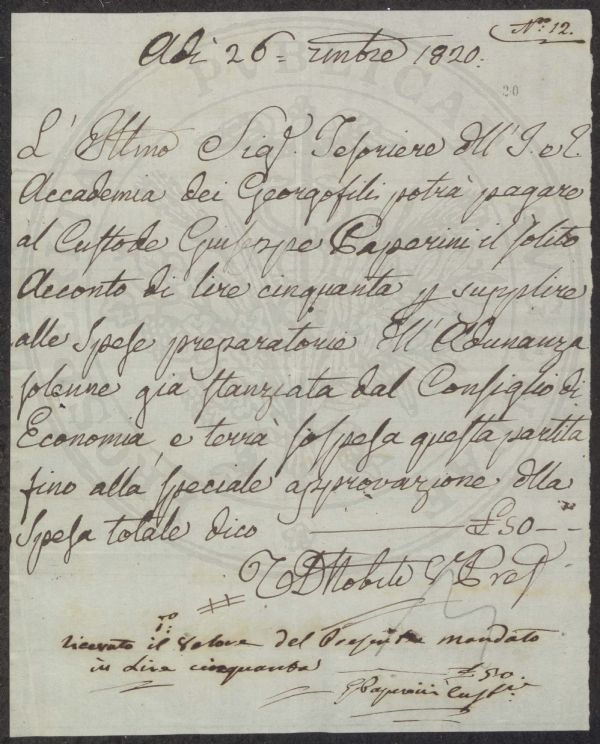 N.º 12.
Adì 26 = Xmbre 1820.
20
L' Ill.mo Sig.r Tesoriere dell' I. e R.
Accademia dei Georgofili potrà pagare
al Custode Giuseppe Paperini il solito
Acconto di lire cinquanta p supplire
alle Spese preparatorie dell' Adunanza
solenne già stanziata dal Consiglio di
Economia, e terrà sospesa questa partita
fino alla speciale approvazione della
Spesa totale dico £ 50 --
Nobili
ricevuto il Valore del Presente mandato
in Lire cinquanta £ 50.
G Paperini Cust.e
PUBLICA